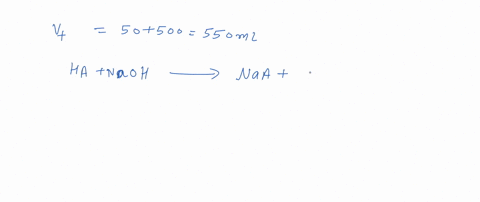 V₄ = 50+500 = 550m2
HA + NaOH ⟶ NaA +